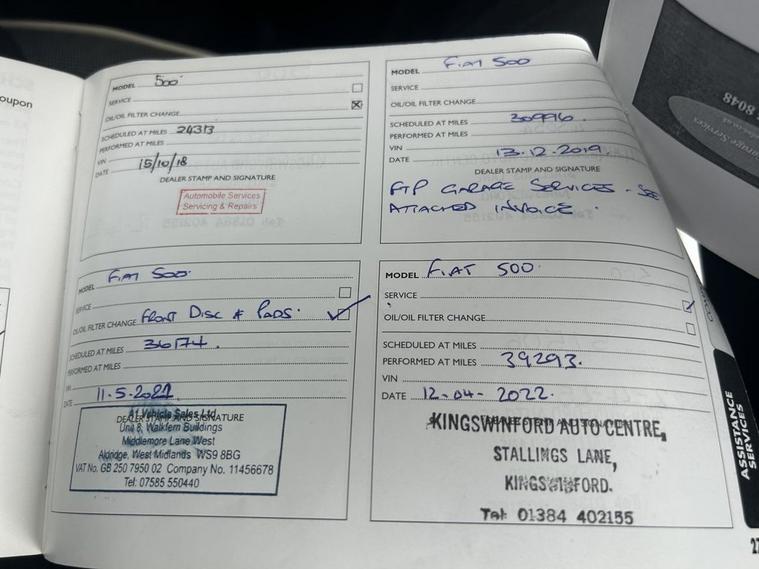 oupon
MODEL 500
SERVICE
OIL/OIL FILTER CHANGE
SCHEDULED AT MILES 24313
PERFORMED AT MILES
VIN
DATE 15/10/18
DEALER STAMP AND SIGNATURE
Automobile Services
Servicing & Repairs
MODEL FIAT 500
SERVICE
OIL/OIL FILTER CHANGE
SCHEDULED AT MILES 30996.
PERFORMED AT MILES
VIN
DATE 13.12.2019.
DEALER STAMP AND SIGNATURE
FTP GARAGE SERVICES - SEE
ATTACHED INVOICE.
MODEL FIAT 500.
SERVICE
OIL/OIL FILTER CHANGE FRONT DISC & PADS.
SCHEDULED AT MILES 36174.
PERFORMED AT MILES
VIN
DATE 11.5.2021
DEALER STAMP AND SIGNATURE
A1 Vehicle Sales Ltd
Unit 8, Walkfern Buildings
Middlemore Lane West
Aldridge, West Midlands WS9 8BG
VAT No. GB 250 7950 02 Company No. 11456678
Tel: 07585 550440
MODEL FIAT 500.
SERVICE
OIL/OIL FILTER CHANGE
SCHEDULED AT MILES
PERFORMED AT MILES 39293.
VIN
DATE 12-04-2022.
KINGSWINFORD AUTO CENTRE,
STALLINGS LANE,
KINGSWINFORD.
Tel: 01384 402155
8048
ASSISTANCE
SERVICES
27